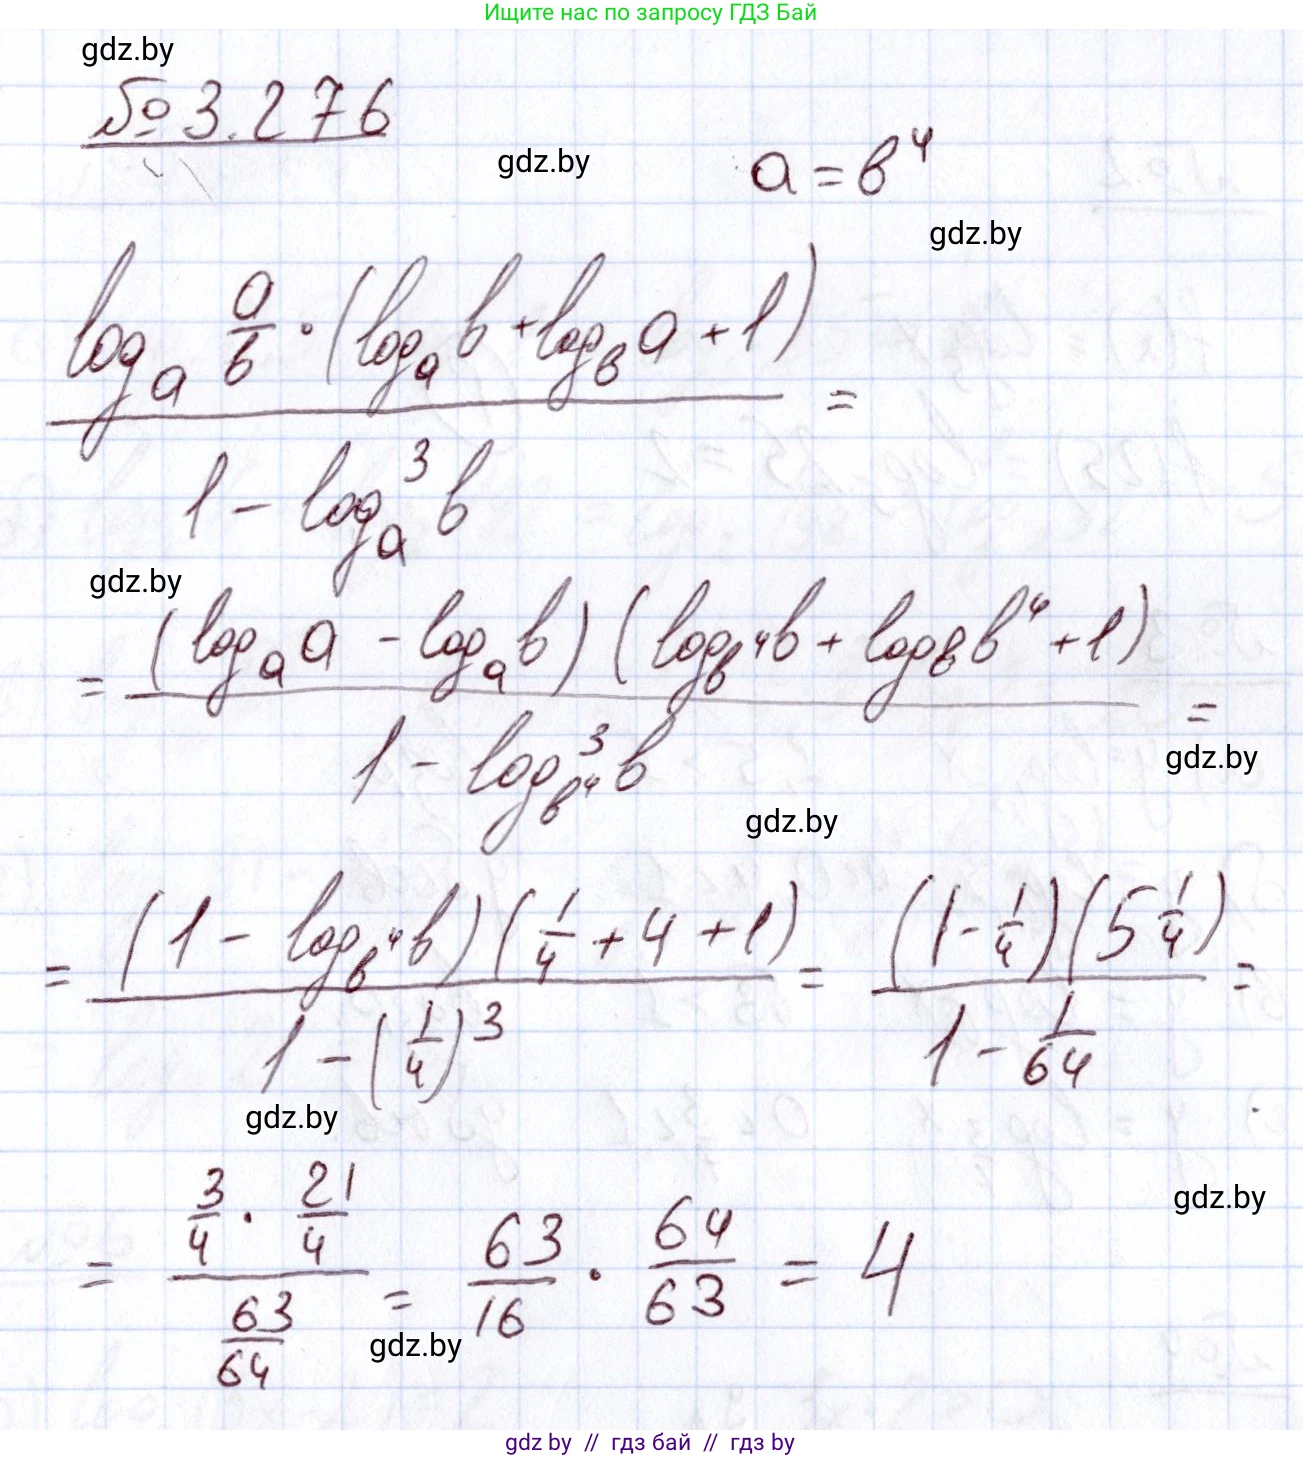 Ищите нас по запросу ГДЗ Бай
gdz.by
№ 3.276
gdz.by
a = b⁴
gdz.by
(log_a a/b · (log_a b + log_b a + 1)) / (1 - log_a³ b) =
gdz.by
= ((log_a a - log_a b)(log_b⁴ b + log_b b⁴ + 1)) / (1 - log³_b⁴ b) =
gdz.by
gdz.by
= ((1 - log_b⁴ b)(1/4 + 4 + 1)) / (1 - (1/4)³) = ((1 - 1/4)(5 1/4)) / (1 - 1/64) =
gdz.by
gdz.by
= (3/4 · 21/4) / (63/64) = 63/16 · 64/63 = 4
gdz.by
gdz by // гдз бай // гдз by